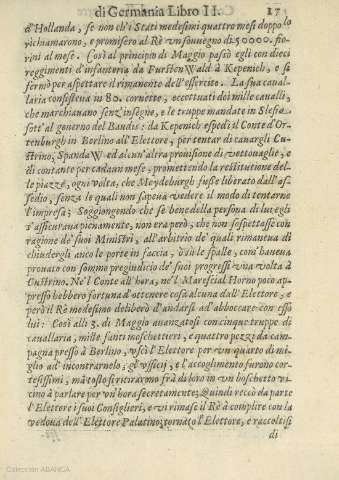 di Germania Libro II. 17
d'Hollanda, se non ch'i Stati medesimi quattro mesi doppo lo
richiamarono, e promisero al Rè un souuegno di 50000. fio-
rini al mese. Così al principio di Maggio passò egli con dieci
reggimenti d'infanteria da FurstenWald à Kepenich, e si
fermò per aspettare il rimanente dell'essercito. La sua caual-
laria consisteua in 80. cornette, eccettuati doi mille caualli,
che marchiauano senz'insegne, e le truppe mandate in Slesia
sote' al gouerno del Baudis: da Kepenich espedì il Conte d'Or-
tenburgh in Borlino all'Elettore, per tentar di cauargli Cu-
strino, SpandaW ed alcun'altra prouisione di vettouaglie, e
di contante per cadaun mese, promettendo la restitutione del-
le piazze, ogni volta, che Meydeburgh fusse liberato dall'as-
sedio, senza le quali non sapeua vedere il modo di tentarne
l'impresa; Soggiongendo che se bene della persona di lui egli
s'assicuraua pienamente, non era però, che non sospettasse con
ragione de' suoi Ministri, all'arbitrio de' quali rimaneua di
chiudergli anco le porte in faccia, ò sù le spalle, com'haueua
prouato con sommo pregiudicio de' suoi progressi vna volta à
Custrino. Ne'l Conte all'hora, ne'l Marescial Horno poco ap-
presso hebbero fortuna d'ottenere cosa alcuna dall'Elettore, e
però il Rè medesimo deliberò d'andarsi ad'abboccar con esso
lui: Così alli 3. di Maggio auanzatosi con cinque truppe di
cauallaria, mille fanti moschettieri, e quattro pezzi da cam-
pagna presso à Berlino, uscì l'Elettore per un quarto di mi-
glio ad'incontrarnelo; gl'ufficij, e l'accoglimento furono cor-
tesissimi, mà tosto si ritirarono frà di loro in un boschetto vi-
cino à parlare per un'hora secretamente; Quindi reccò da parte
l'Elettore i suoi Consiglieri, e vi rimase il Rè à complire con la
vedoua dell'Elettore Palatino; tornato l'Elettore, e raccoltisi
di
Colección ABANCA